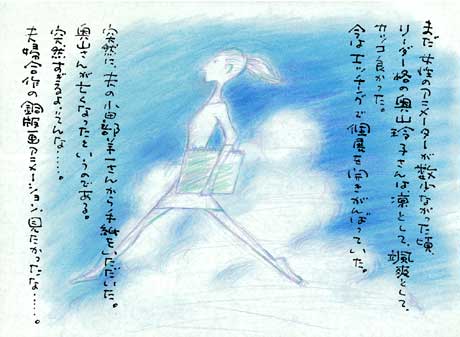 まだ女性のアニメーターが数少なかった頃、
リーダー格の奥山玲子さんは凛として、颯爽として、
カッコ良かった。
今はエッチングで個展を開きがんばっていた。
突然に、夫の小田部羊一さんから手紙をいただいた。
奥山さんが亡くなったというのである。
突然すぎるよ、そんな……。
夫婦合作の銅版画アニメーション、見たかったな……。